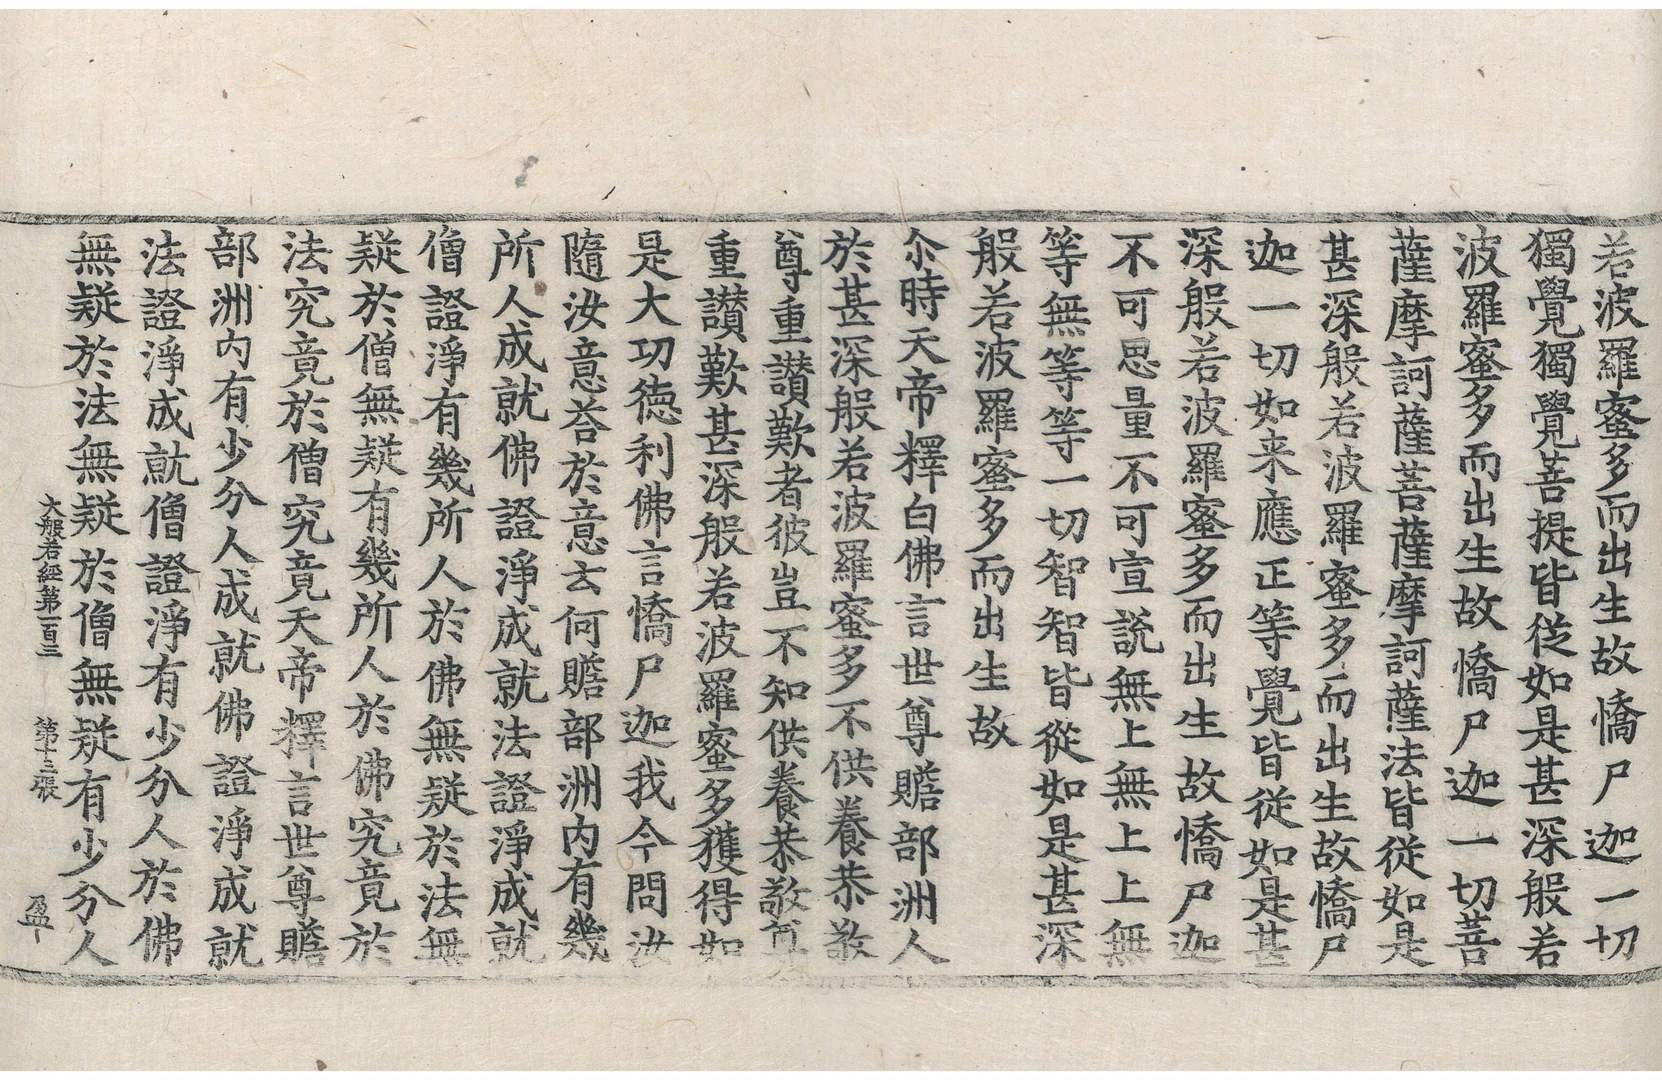 若波羅蜜多而出生故憍尸迦一切
獨覺獨覺菩提皆從如是甚深般若
波羅蜜多而出生故憍尸迦一切菩
薩摩訶薩菩薩摩訶薩法皆從如是
甚深般若波羅蜜多而出生故憍尸
迦一切如来應正等覺皆從如是甚
深般若波羅蜜多而出生故憍尸迦
不可思量不可宣說無上無上上無
等無等等一切智智皆從如是甚深
般若波羅蜜多而出生故
尒時天帝釋白佛言世尊贍部洲人
於甚深般若波羅蜜多不供養恭敬
尊重讃歎者彼豈不知供養恭敬尊
重讃歎甚深般若波羅蜜多獲得如
是大功德利佛言憍尸迦我今問汝
隨汝意荅於意云何贍部洲内有幾
所人成就佛證淨成就法證淨成就
僧證淨有幾所人於佛無疑於法無
疑於僧無疑有幾所人於佛究竟於
法究竟於僧究竟天帝釋言世尊贍
部洲内有少分人成就佛證淨成就
法證淨成就僧證淨有少分人於佛
無疑於法無疑於僧無疑有少分人
大般若經第一百三 第十三張 盈